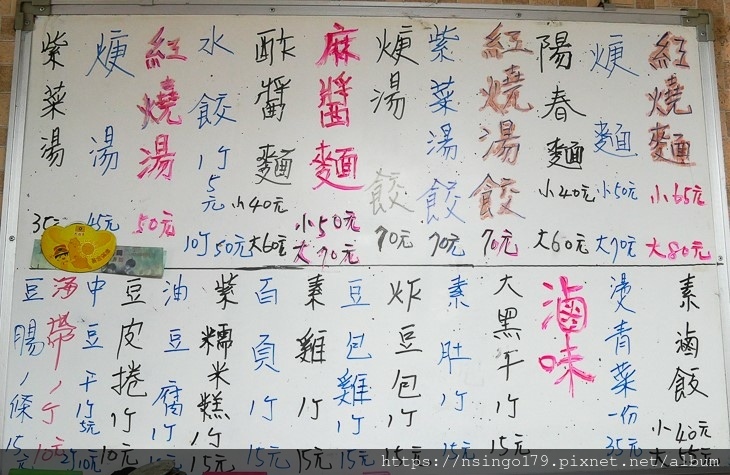 紅燒麵 小65元 大80元
焿麵 小50元 大70元
陽春麵 小40元 大60元
紅燒湯餃 70元
紫菜湯餃 70元
焿湯餃 70元
麻醬麵 小50元 大70元
酢醬麵 小40元 大60元
水餃 1个5元 10个50元
紅燒湯 50元
焿湯 45元
紫菜湯 35元
素滷飯 小40元
燙青菜 一份 35元
滷味
大黑干 1个 15元
素肚 1个 15元
炸豆包 1个 15元
豆包雞 1个 15元
素雞 1个 15元
百頁 1个 15元
紫糯米糕 1个 15元
油豆腐 1个
豆皮捲 1个 10元
中豆干 1个5元 2个10元
海帶 1个 10元
豆腸 1條 15元
https://nsingo179.pixnet.net/album